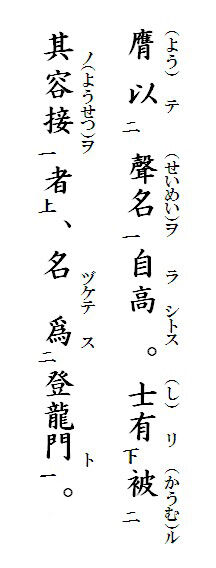 膺(よう)以テ二聲名(せいめい)ヲ一自ラ高シトス。士(し)有リ下被(かうむ)ル二
其ノ容接(ようせつ)ヲ一者上、名ヅケテ爲ス二登龍門ト一。